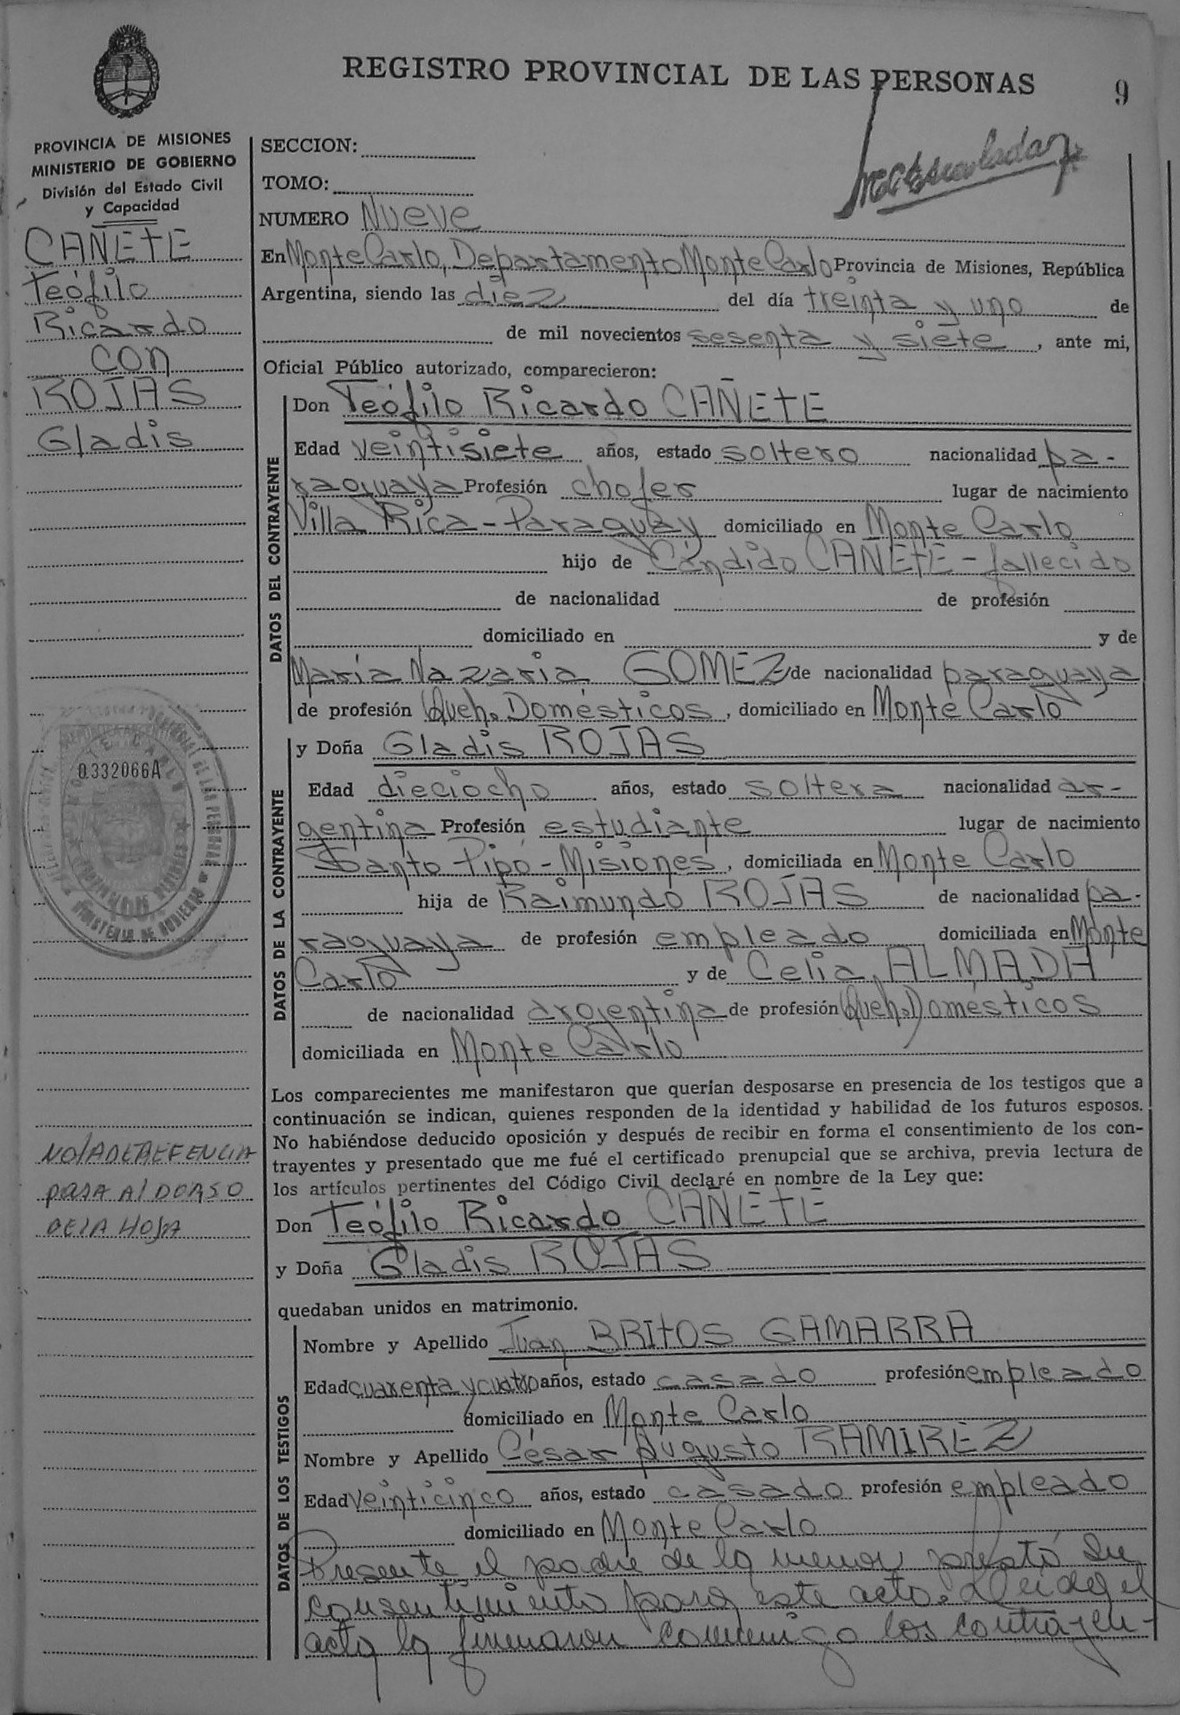 REGISTRO PROVINCIAL DE LAS PERSONAS
9
PROVINCIA DE MISIONES
MINISTERIO DE GOBIERNO
División del Estado Civil
y Capacidad
CAÑETE
Teófilo
Ricardo
con
ROJAS
Gladis
0332066A
NOTA DE REFERENCIA
PASA AL DORSO
DE LA HOJA
SECCION:
TOMO:
NUMERO Nueve
En Monte Carlo, Departamento Monte Carlo Provincia de Misiones, República
Argentina, siendo las diez del día treinta y uno de
de mil novecientos sesenta y siete, ante mi,
Oficial Público autorizado, comparecieron:
DATOS DEL CONTRAYENTE
Don Teófilo Ricardo CAÑETE
Edad veintisiete años, estado soltero nacionalidad pa-
raguaya Profesión chofer lugar de nacimiento
Villa Rica - Paraguay domiciliado en Monte Carlo
hijo de Cándido CAÑETE - fallecido
de nacionalidad de profesión
domiciliado en y de
María Nazaria GOMEZ de nacionalidad paraguaya
de profesión Queh. Domésticos, domiciliado en Monte Carlo
DATOS DE LA CONTRAYENTE
y Doña Gladis ROJAS
Edad dieciocho años, estado soltera nacionalidad ar-
gentina Profesión estudiante lugar de nacimiento
Santo Pipó - Misiones, domiciliada en Monte Carlo
hija de Raimundo ROJAS de nacionalidad pa-
raguaya de profesión empleado domiciliada en Monte
Carlo y de Celia ALMADA
de nacionalidad argentina de profesión Queh. Domésticos
domiciliada en Monte Carlo
Los comparecientes me manifestaron que querían desposarse en presencia de los testigos que a
continuación se indican, quienes responden de la identidad y habilidad de los futuros esposos.
No habiéndose deducido oposición y después de recibir en forma el consentimiento de los con-
trayentes y presentado que me fué el certificado prenupcial que se archiva, previa lectura de
los artículos pertinentes del Código Civil declaré en nombre de la Ley que:
Don Teófilo Ricardo CAÑETE
y Doña Gladis ROJAS
quedaban unidos en matrimonio.
DATOS DE LOS TESTIGOS
Nombre y Apellido Juan BRITOS GAMARRA
Edad cuarenta y cuatro años, estado casado profesión empleado
domiciliado en Monte Carlo
Nombre y Apellido César Augusto RAMIREZ
Edad veinticinco años, estado casado profesión empleado
domiciliado en Monte Carlo
Presente el padre de la menor prestó su
consentimiento para este acto. Leída el
acta la firmaron conmigo los contrayen-